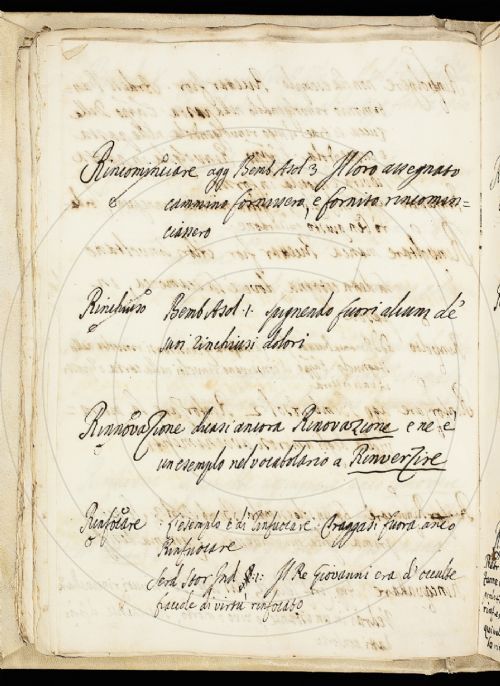 Rincominciare agg Bemb Asol 3 Il loro assegnato
cammino fornissero, e fornito rincomin=
ciassero
Rinchiuso Bemb Asol: 1: spignendo fuori alcun de'
suoi rinchiusi dolori
Rinnovazione dicasi ancora Rinovazione e ne, è
un esemplo nel vocabolario a Rinverzire
Rinfocare l'esemplo è di Rinfuocare: traggasi fuora anco
Rinfuocare
Serd Stor Ind 1: Il Re Giovanni era d'occulte
faccole di virtù rinfocato